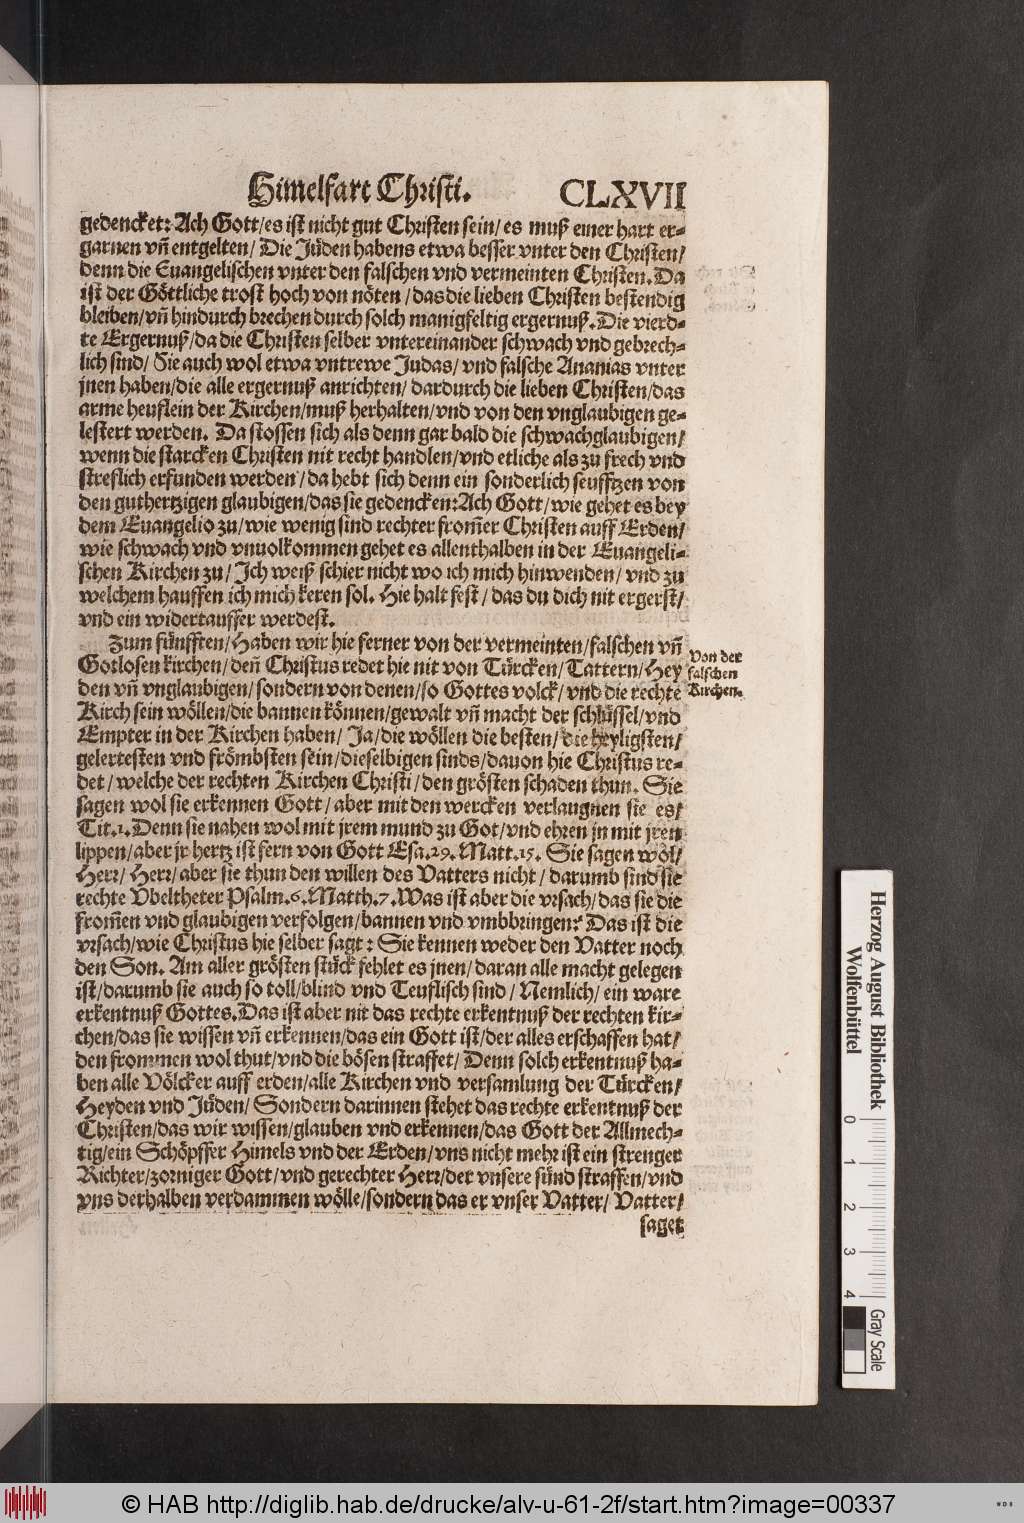 Himelfart Christi. CLXVII
gedencket: Ach Gott/es ist nicht gut Christen sein/es muß einer hart er-
garnen vñ entgelten/ Die Jüden habens etwa besser vnter den Christen/
denn die Euangelischen vnter den falschen vnd vermeinten Christen. Da
ist der Göttliche trost hoch von nöten/das die lieben Christen bestendig
bleiben/vñ hindurch brechen durch solch manigfeltig ergernuß. Die vierd-
te Ergernuß/da die Christen selber vntereinander schwach vnd gebrech-
lich sind/ Sie auch wol etwa vntrewe Judas/vnd falsche Ananias vnter
jnen haben/die alle ergernuß anrichten/ dardurch die lieben Christen/das
arme heuflein der Kirchen/muß herhalten/vnd von den vnglaubigen ge-
lestert werden. Da stossen sich als denn gar bald die schwachglaubigen/
wenn die starcken Christen nit recht handlen/vnd etliche als zu frech vnd
streflich erfunden werden/da hebt sich denn ein sonderlich seufftzen von
den guthertzigen glaubigen/das sie gedencken: Ach Gott/wie gehet es bey
dem Euangelio zu/wie wenig sind rechter from̃er Christen auff Erden/
wie schwach vnd vnuolkommen gehet es allenthalben in der Euangeli-
schen Kirchen zu/ Ich weiß schier nicht wo ich mich hinwenden/ vnd zu
welchem hauffen ich mich keren sol. Hie halt fest/das du dich nit ergerst/
vnd ein widertauffer werdest.
Zum fünfften/Haben wir hie ferner von der vermeinten/falschen vñ
Gotlosen kirchen/deñ Christus redet hie nit von Türcken/Tattern/Hey
den vñ vnglaubigen/sondern von denen/so Gottes volck/vnd die rechte
Kirch sein wöllen/die bannen können/gewalt vñ macht der schlüssel/vnd
Empter in der Kirchen haben/ Ja/die wöllen die besten/die heyligsten/
gelertesten vnd frömbsten sein/dieselbigen sinds/dauon hie Christus re-
det/welche der rechten Kirchen Christi/den grösten schaden thun. Sie
sagen wol sie erkennen Gott/aber mit den wercken verlaugnen sie es/
Tit.1. Denn sie nahen wol mit jrem mund zu Got/vnd ehren jn mit jren
lippen/aber jr hertz ist fern von Gott Esa.29. Matt.15. Sie sagen wol/
Herr/ Herr/aber sie thun den willen des Vatters nicht/darumb sind sie
rechte Vbeltheter Psalm.6. Matth.7. Was ist aber die vrsach/das sie die
from̃en vnd glaubigen verfolgen/bannen vnd vmbbringen? Das ist die
vrsach/wie Christus hie selber sagt: Sie kennen weder den Vatter noch
den Son. Am aller grösten stück fehlet es jnen/daran alle macht gelegen
ist/darumb sie auch so toll/blind vnd Teuflisch sind/ Nemlich/ ein ware
erkentnuß Gottes. Das ist aber nit das rechte erkentnuß der rechten kir-
chen/das sie wissen vñ erkennen/das ein Gott ist/der alles erschaffen hat/
den frommen wol thut/vnd die bösen straffet/ Denn solch erkentnuß ha-
ben alle Völcker auff erden/alle Kirchen vnd versamlung der Türcken/
Heyden vnd Jüden/ Sondern darinnen stehet das rechte erkentnuß der
Christen/das wir wissen/glauben vnd erkennen/das Gott der Allmech-
tig/ein Schöpffer Himels vnd der Erden/vns nicht mehr ist ein strenger
Richter/zorniger Gott/vnd gerechter Herr/der vnsere sünd straffen/vnd
vns derhalben verdammen wölle/sondern das er vnser Vatter/ Vatter/
saget
Von der
falschen
Kirchen.
Herzog August Bibliothek
Wolfenbüttel
0 1 2 3 4
Gray Scale
© HAB http://diglib.hab.de/drucke/alv-u-61-2f/start.htm?image=00337
WDB